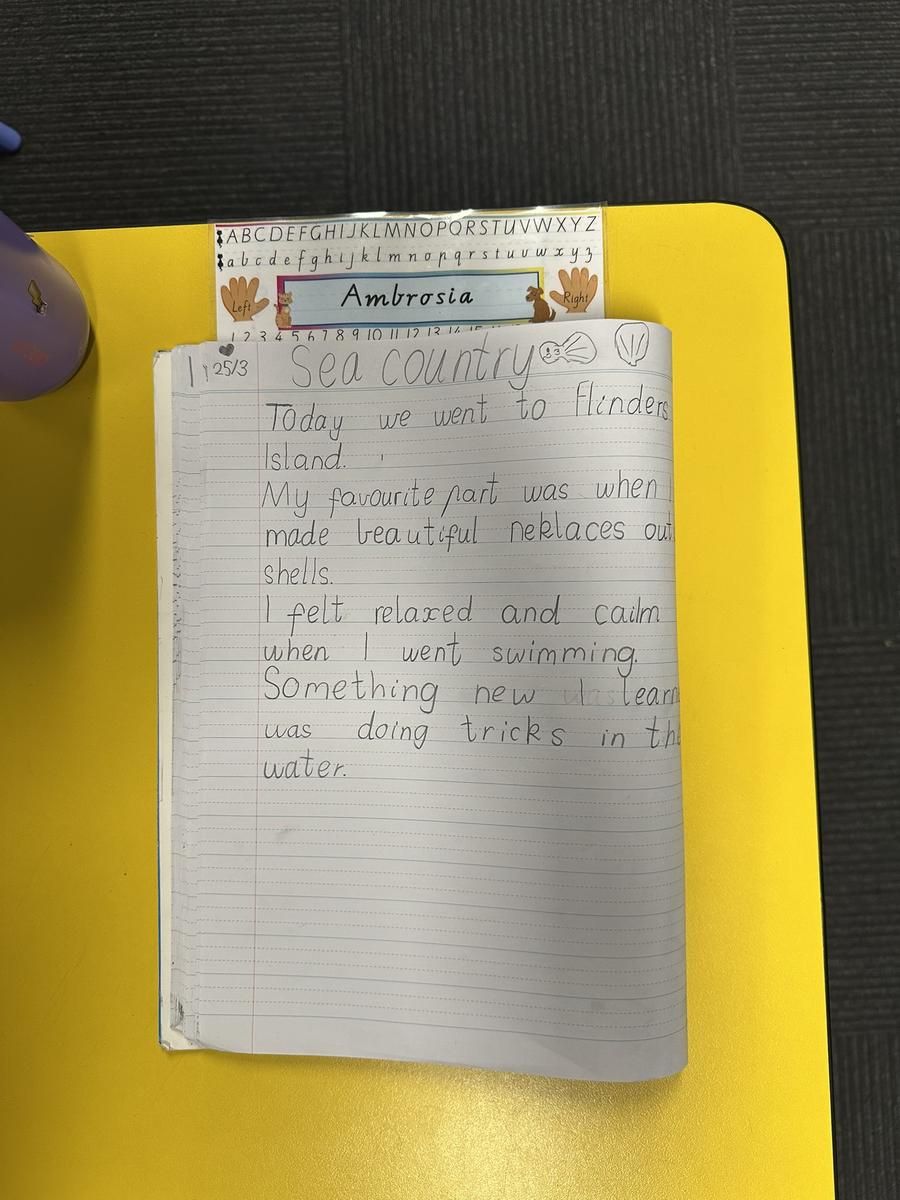 ABCDEFGHIJKLMNOPQRSTUVWXYZ
abcdefghijklmnopqrstuvwxyz
Left
Ambrosia
Right
1 2 3 4 5 6 7 8 9 10 11 12 13 14
25/3
Sea country
Today we went to Flinders
Island.
My favourite part was when
made beautiful neklaces out
shells.
I felt relaxed and cailm
when I went swimming.
Something new learn
was doing tricks in the
water.